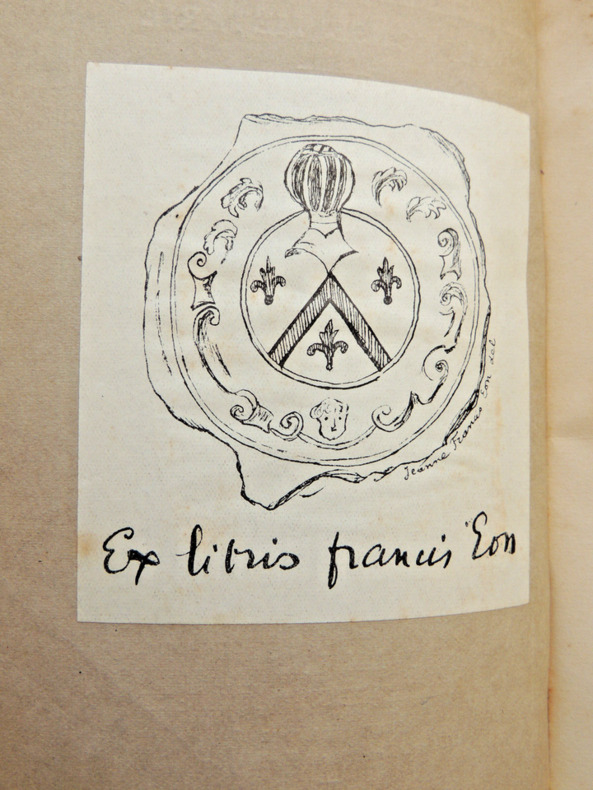 Jeanne Francis Eon del
Ex libris francis Eon